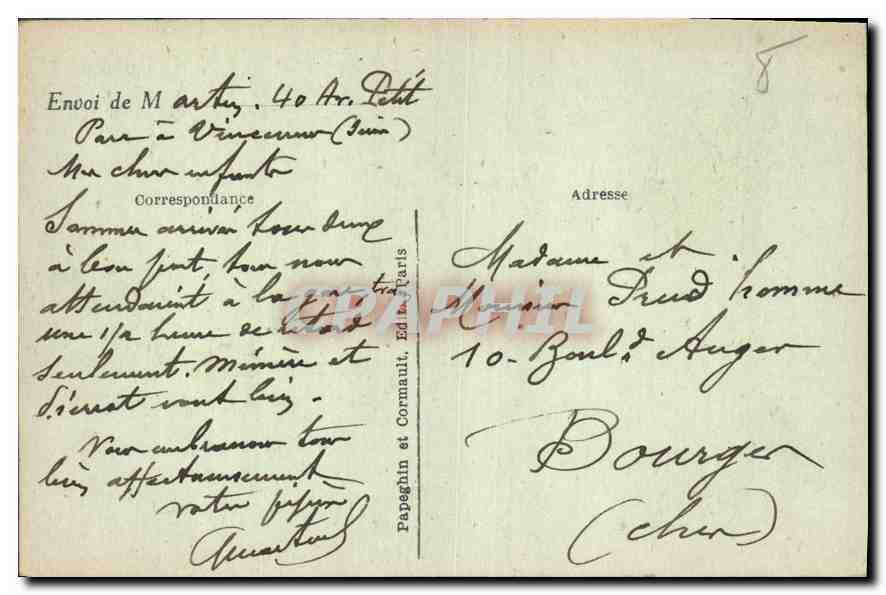 Envoi de Martin. 40 Av. Petit
Parc à Vincennes (Seine)
Mes chers enfants
Correspondance
Sommes arrivés tous deux
à bon port, tous nous
attendaient à la gare train
une 1/2 heure de retard
seulement. Mémère et
vont bien.
Vous embrassons tous
bien affectueusement
votre pépère
Papeghin et Cormault, Edit. Paris
CPAPHIL
8
Adresse
Madame et
Monsieur Prud'homme
10 - Boul.d Auger
Bourges
(Cher)